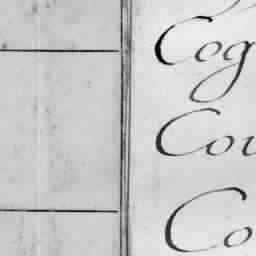 Cog
Cou
Co